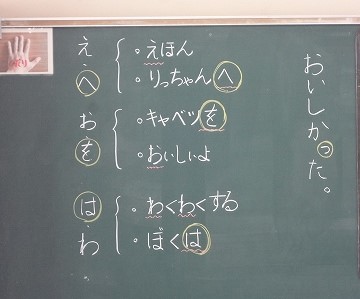 おいしかった。
え・へ
・えほん
・りっちゃんへ
お・を
・キャベツを
・おいしいよ
は・わ
・わくわくする
・ぼくは